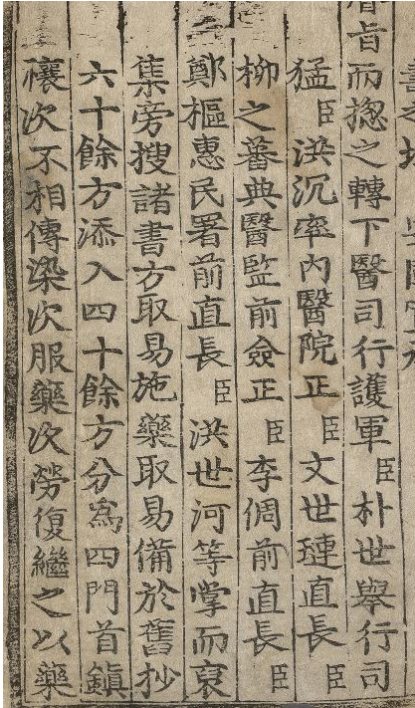 旨而揔之轉下醫司行護軍臣朴世舉行司
猛臣洪沉率內醫院正臣文世璉直長臣
柳之蕃典醫監前僉正臣李倜前直長臣
鄭樞惠民署前直長臣洪世河等掌而裒
集旁搜諸書方取易施藥取易備於舊抄
六十餘方添入四十餘方分爲四門首鎭
禳次不相傳染次服藥次勞復繼之以藥